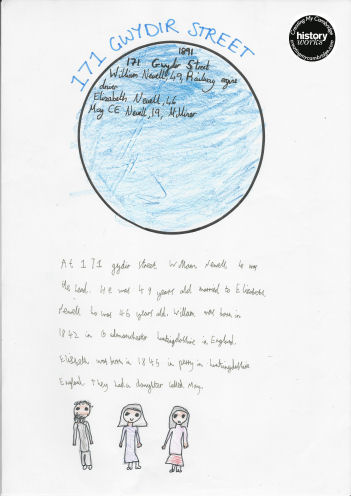 171 GWYDIR STREET
Creating My Cambridge
history
works
creatingmycambridge.com
1891
171 Gwydir Street
William Newell, 49, Railway engine
driver
Elizabeth Newell, 46
May CE Newell, 19, Milliner
At 171 gydir street William Newell 49 was
the head. He was 49 years old married to Elizabeth
Newell who was 46 years old. William was born in
1842 in Godmanchester huntingdonshire in England.
Elizabeth was born in 1845 in in huntingdonshire
England. They had a daughter called May.